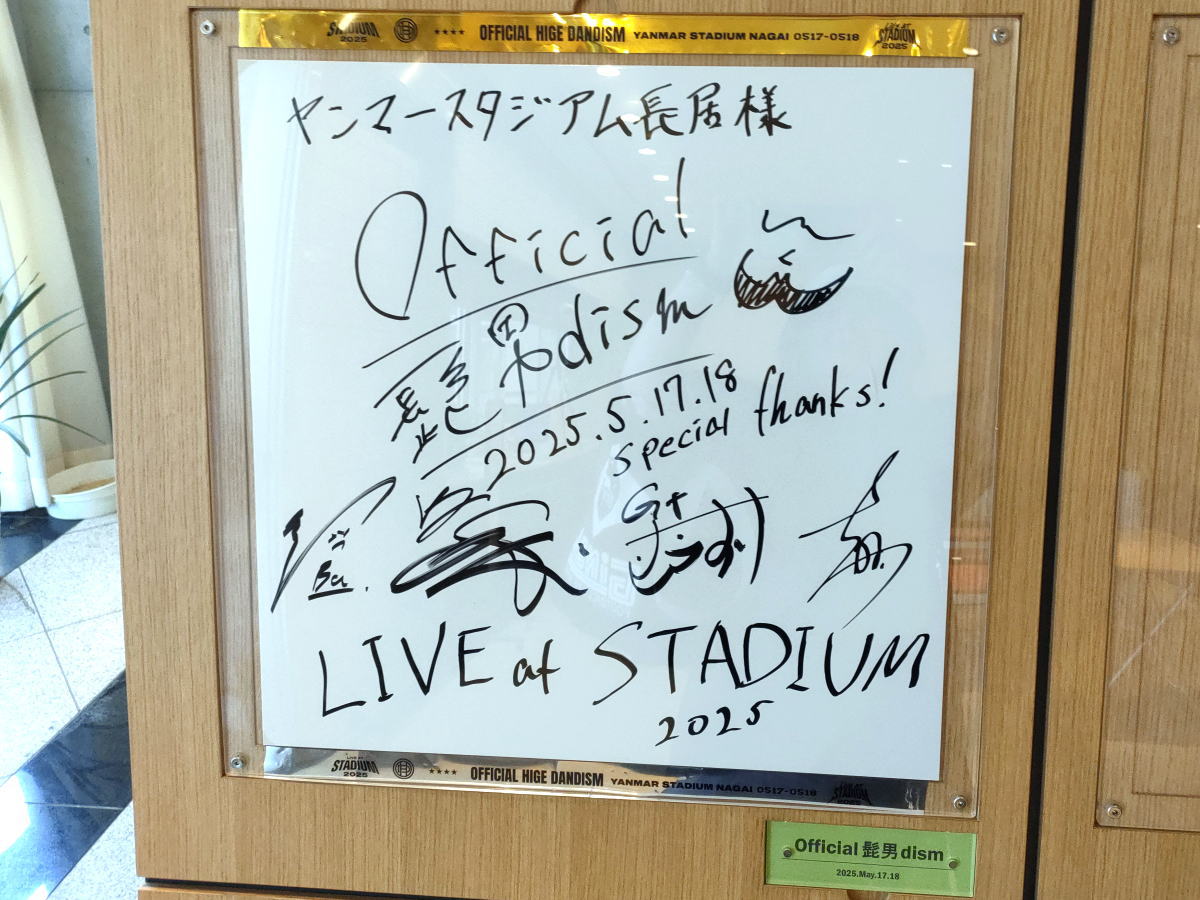 LIVE AT
STADIUM
2025
★★★★ OFFICIAL HIGE DANDISM YANMAR STADIUM NAGAI 0517-0518
LIVE AT
STADIUM
2025
ヤンマースタジアム長居様
Official
髭男dism
2025.5.17.18
special thanks!
Ba.
Gt
LIVE at STADIUM
2025
LIVE AT
STADIUM
2025
★★★★ OFFICIAL HIGE DANDISM YANMAR STADIUM NAGAI 0517-0518
STADIUM
2025
Official髭男dism
2025.May.17.18